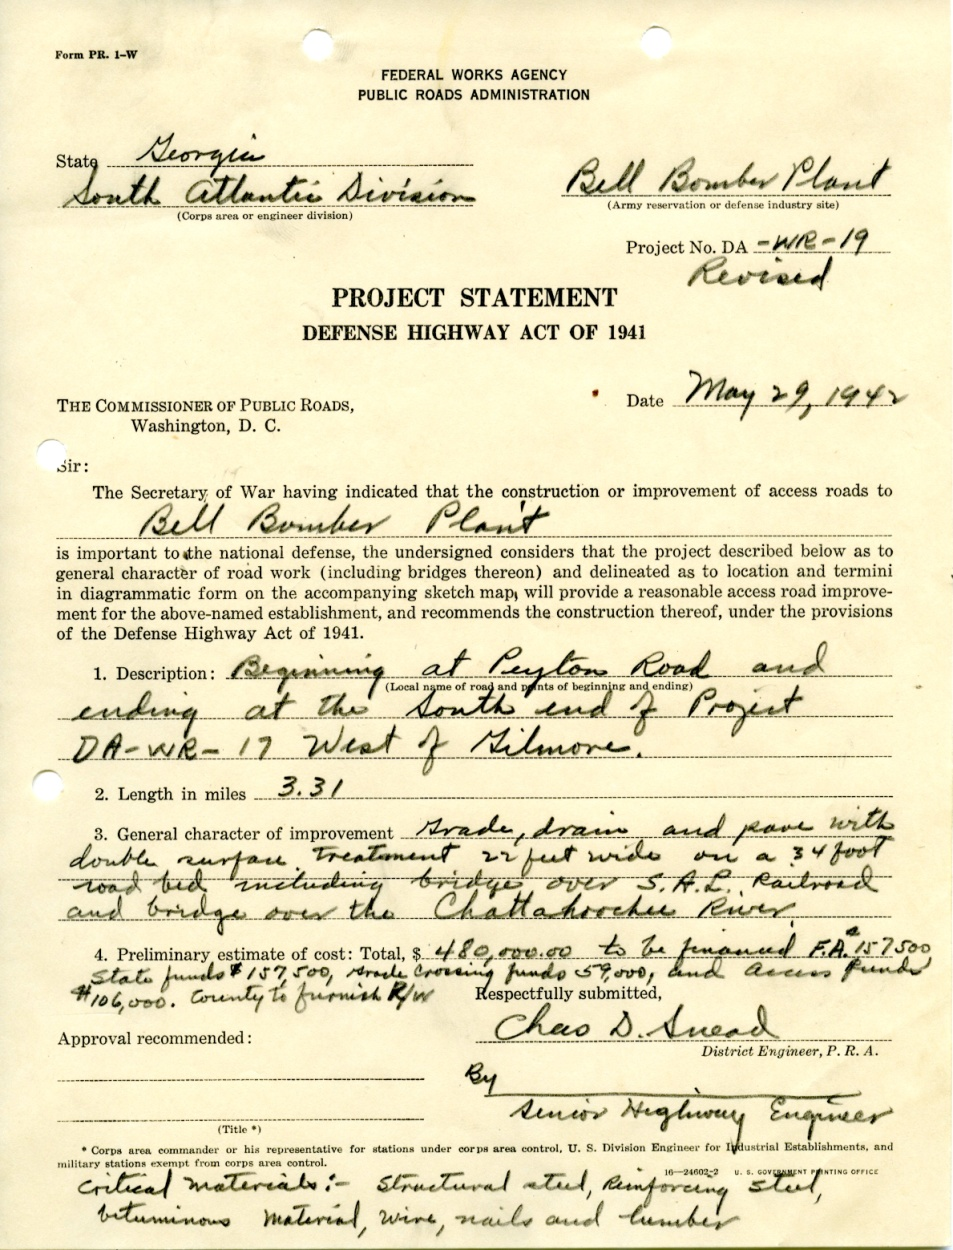 Form PR. 1–W
FEDERAL WORKS AGENCY
PUBLIC ROADS ADMINISTRATION
State Georgia
South Atlantic Division
(Corps area or engineer division)
Bell Bomber Plant
(Army reservation or defense industry site)
Project No. DA -WR-19
Revised
PROJECT STATEMENT
DEFENSE HIGHWAY ACT OF 1941
THE COMMISSIONER OF PUBLIC ROADS,
Washington, D. C.
Date May 29, 1942
Sir:
The Secretary of War having indicated that the construction or improvement of access roads to
Bell Bomber Plant
is important to the national defense, the undersigned considers that the project described below as to
general character of road work (including bridges thereon) and delineated as to location and termini
in diagrammatic form on the accompanying sketch map, will provide a reasonable access road improve-
ment for the above-named establishment, and recommends the construction thereof, under the provisions
of the Defense Highway Act of 1941.
1. Description: Beginning at Peyton Road and
(Local name of road and points of beginning and ending)
ending at the South end of Project
DA-WR-17 West of Gilmore.
2. Length in miles 3.31
3. General character of improvement Grade, drain and pave with
double surface treatment 22 feet wide on a 34 foot
road bed including bridge over S.A.L. Railroad
and bridge over the Chattahoochee River.
4. Preliminary estimate of cost: Total, $ 480,000.00 to be financed F.A. $157500
State funds $157,500, Grade Crossing funds 59,000, and Access Funds
$106,000. County to furnish R/W
Respectfully submitted,
Chas D. Snead
District Engineer, P. R. A.
Approval recommended:
By
Senior Highway Engineer
(Title *)
* Corps area commander or his representative for stations under corps area control, U. S. Division Engineer for Industrial Establishments, and
military stations exempt from corps area control.
16—24602-2 U. S. GOVERNMENT PRINTING OFFICE
Critical Materials:- Structural steel, Reinforcing steel,
bituminous material, wire, nails and lumber